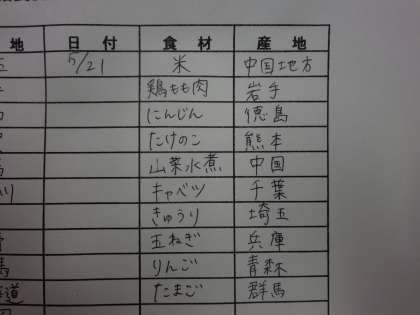 地 日付 食材 産地
玉 5/21 米 中国地方
鶏もも肉 岩手
にんじん 徳島
たけのこ 熊本
山菜水煮 中国
川 キャベツ 千葉
きゅうり 埼玉
玉ねぎ 兵庫
馬 りんご 青森
道 たまご 群馬